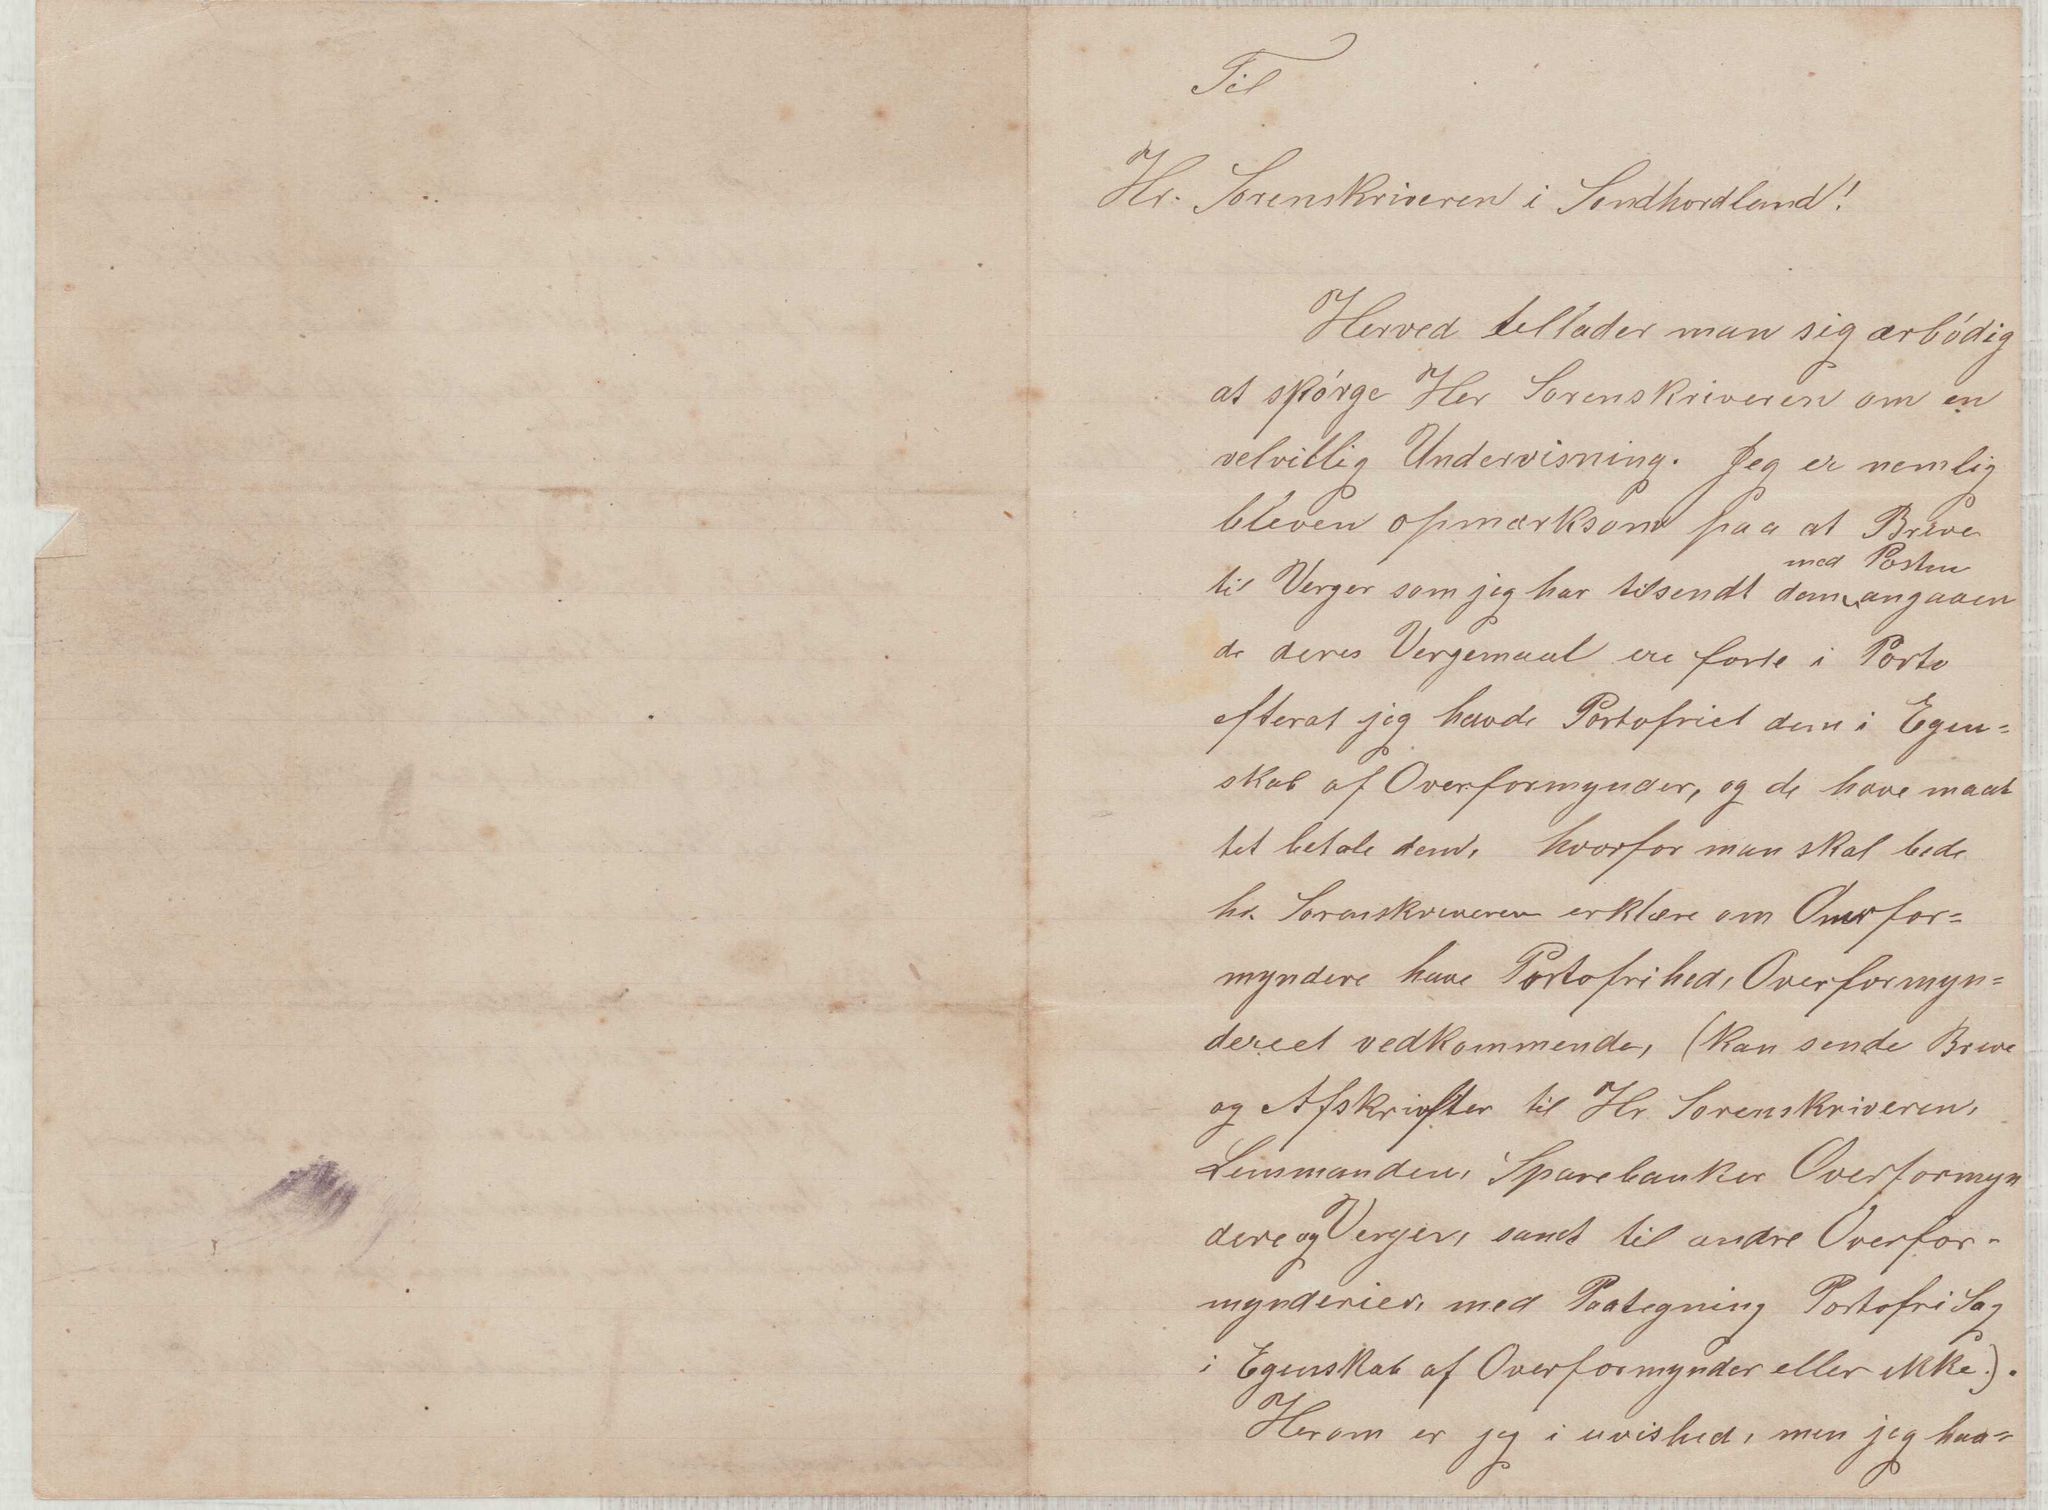 Til
Hr. Sorenskriveren i Søndhordland!
Herved tillader man sig ærbödig
at spörge Her Sorenskriveren om en
velvillig Undervisning. Jeg er nemlig
bleven opmærksom paa at Breve
med Posten
til Verger som jeg har tilsendt dem angaaen
de deres Vergemaal ere forte i Porto
efterat jeg havde Portofriet dem i Egen=
skab af Overformynder, og de have maat
tet betale dem, hvorfor man skal bede
hr. Sorenskriveren erklære om Overfor=
myndere have Portofrihed, Overformyn=
deriet vedkommende, (kan sende Breve
og Afskrifter til Hr Sorenskriveren,
Lensmanden, Sparebanker Overformyn
dere og Verger, samt til andre Overfor-
mynderier, med Paategning Portofri Sag
i Egenskab af Overformynder eller ikke.).
Herom er jeg i uvished, men jeg haa=